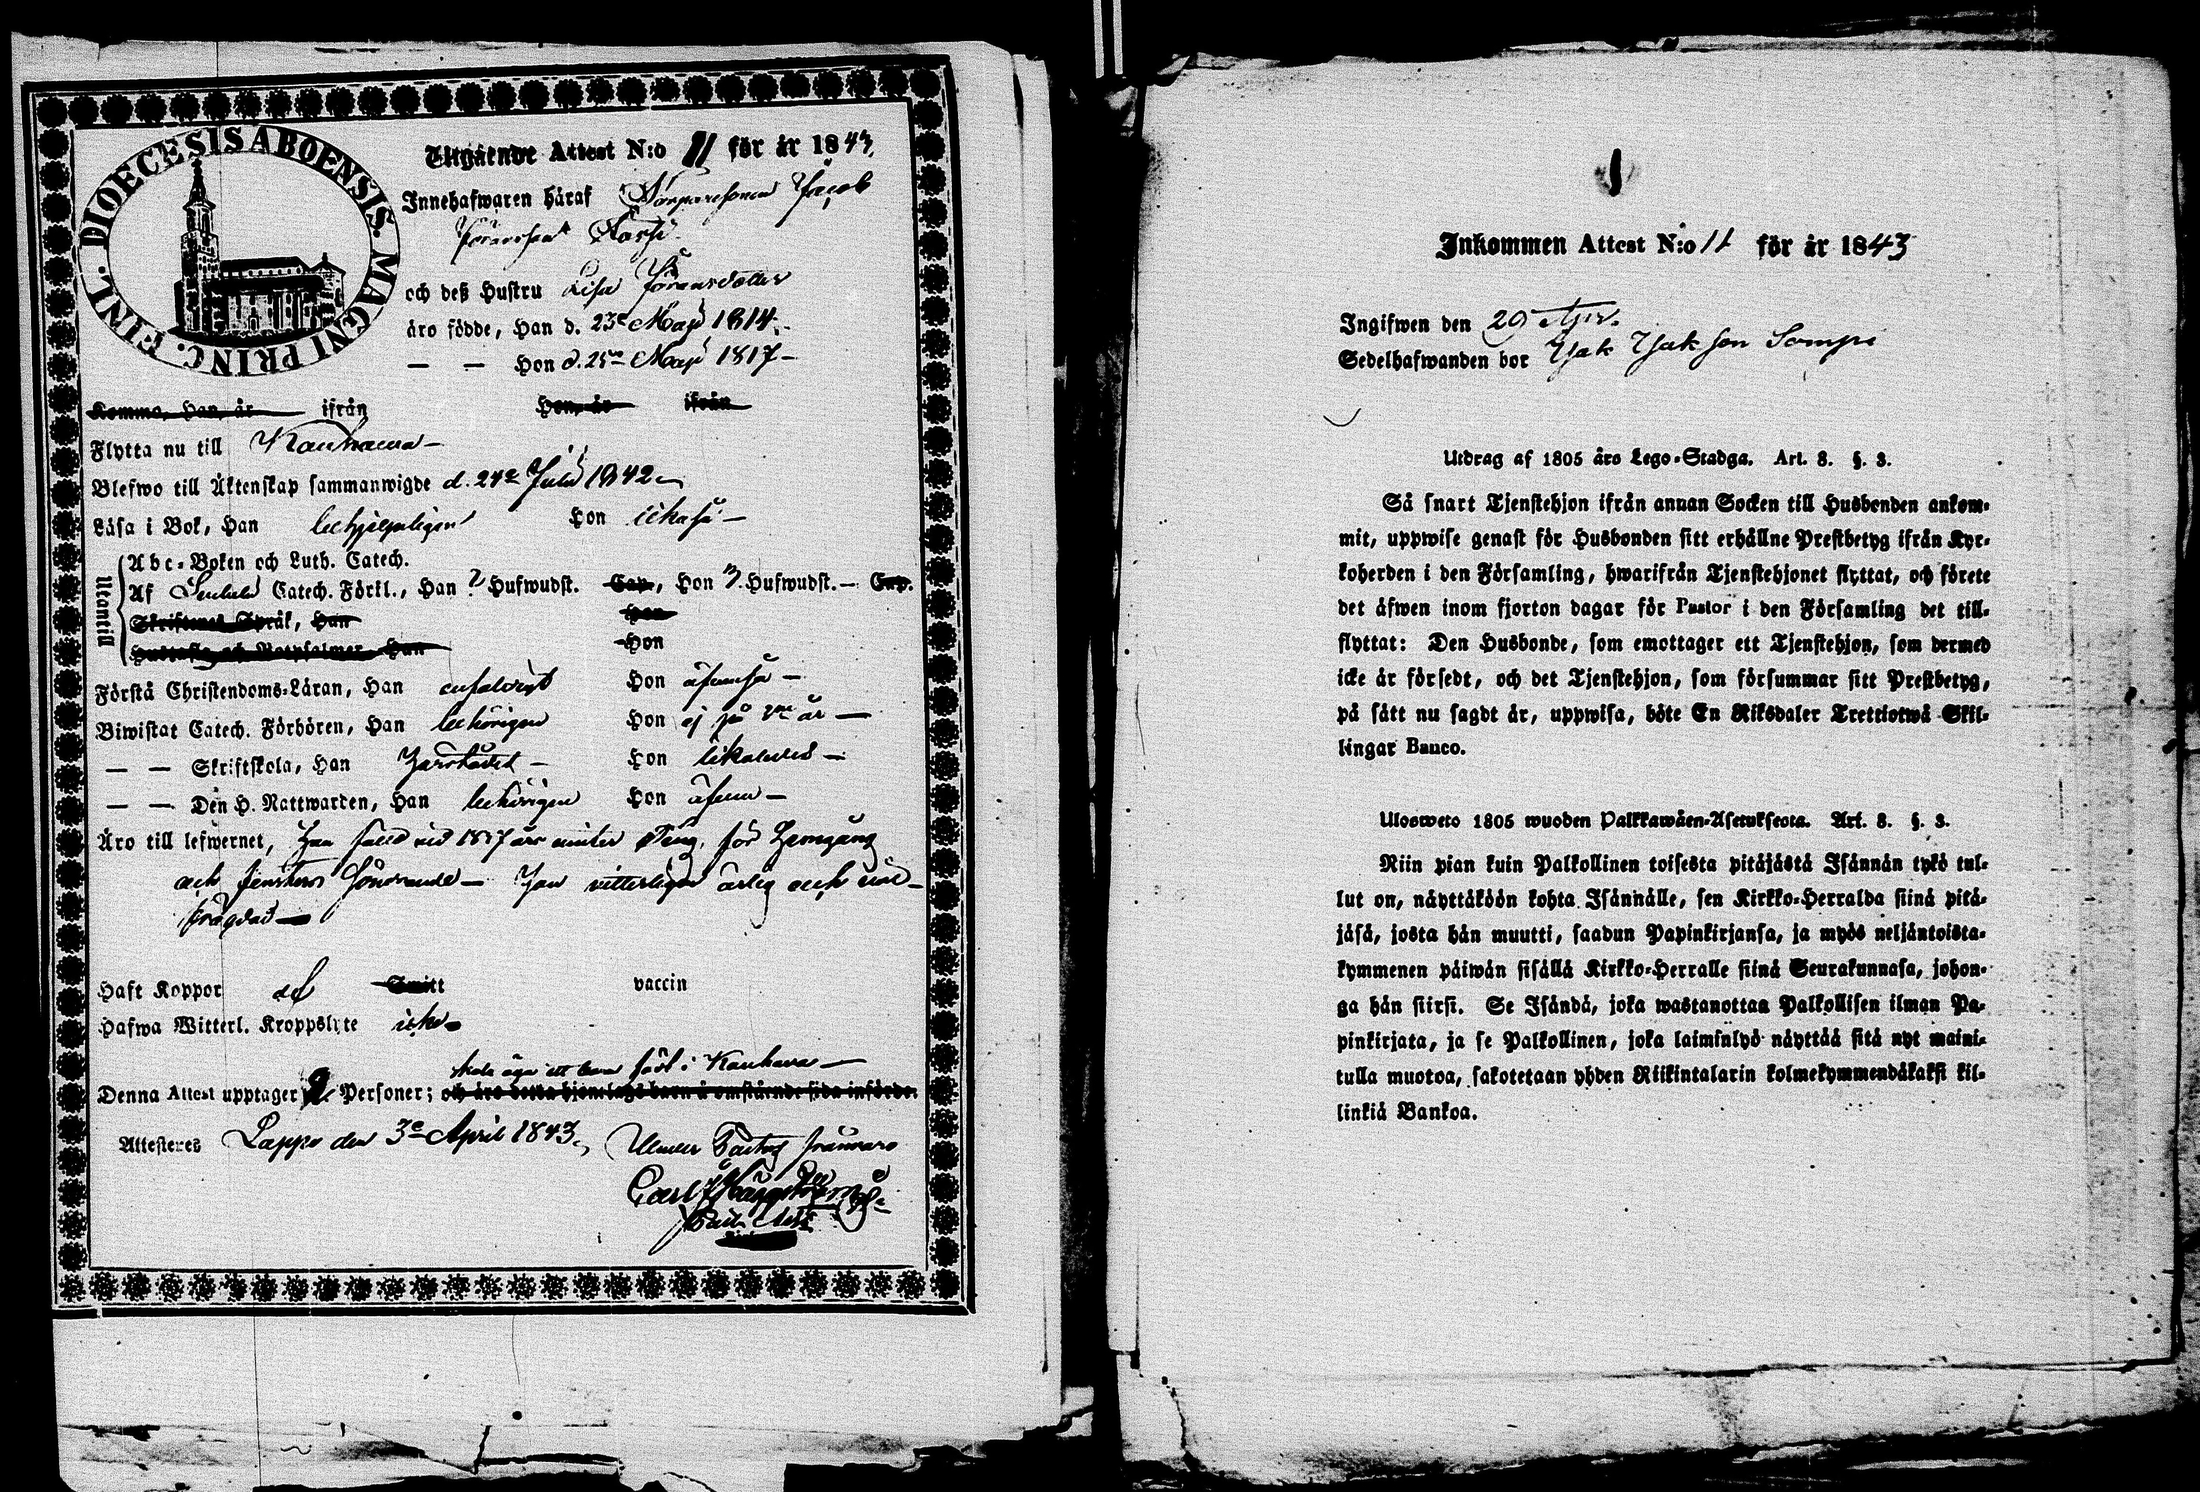 DIOECESIS ABOENSIS MAGNI PRINC. FINL.
Utgående Attest N:o 11 för år 1843
Innehafwaren häraf Torparesonen Jacob
Passi
och deß Hustru Lisa Jöransdotter
äro födde, Han d. 23e Maji 1814.
— — Hon d. 25 Maji 1817 —
Komma, Han, år ifrån Hon, år ifrån
Flytta nu till Kauhawa —
Blefwo till Äktenskap sammanwigde d. 24e Julii 1842
Läsa i Bok, Han behjelpeligen Hon likaså —
Utantill
Abc-Boken och Luth. Catech.
Af Catech. Förkl., Han 2 Hufwudst. Cap., Hon 3 Hufwudst. — Cap.
Skriftenes Språk, Han Hon
Hustafla och Botpsalmer Han Hon
Förstå Christendoms-Läran, Han enfaldigt Hon äfwenså —
Biwistat Catech. Förhören, Han behörigen Hon ej på år —
— — Skriftskola, Han Hon likaledes —
— — Den H. Nattwarden, Han behörigen Hon äfwen —
Äro till lefwernet, Han vid 1837 års winter Ting, för Hemgång
och fenstrens sönderande — Hon witterligen ärlig och wäl-
frägdad —
Haft Koppor Smitt vaccin
Hafwa Witterl. Kroppslyte icke
i Kauhava —
Denna Attest upptager 2 Personer; och äro detta hjonelags barn å omstående sida införde.
Attesteres Lappo den 3e April 1843. Under Pastors frånvaro
Carl

Inkommen Attest N:o 11 för år 1843
Ingifwen den 29 Apr.
Sedelhafwanden bor Isak Isakson Sompi
Utdrag af 1805 års Lego-Stadga. Art. 8. §. 3.
Så snart Tjenstehjon ifrån annan Socken till Husbonden ankom-
mit, uppwise genast för Husbonden sitt erhållne Prestbetyg ifrån Kyr-
koherden i den Församling, hwarifrån Tjenstehjonet flyttat, och förete
det äfwen inom fjorton dagar för Pastor i den Församling det till-
flyttat: Den Husbonde, som emottager ett Tjenstehjon, som dermed
icke är försedt, och det Tjenstehjon, som försummar sitt Prestbetyg,
på sätt nu sagdt är, uppwisa, böte En Riksdaler Trettiotwå Skil-
lingar Banco.
Ulosweto 1805 wuoden Palkkawäen-Asetuksesta. Art. 8. §. 3.
Niin pian kuin Palkollinen toisesta pitäjästä Isännän tykö tul-
lut on, näyttäköön kohta Isännälle, sen Kirkko-Herralda siinä pitä-
jäsä, josta hän muutti, saadun Papinkirjansa, ja myös neljäntoista-
kymmenen päiwän sisällä Kirkko-Herralle siinä Seurakunnasa, johon-
ga hän siirsi. Se Isändä, joka wastanottaa Palkollisen ilman Pa-
pinkirjata, ja se Palkollinen, joka laiminlyö näyttää sitä nyt maini-
tulla muotoa, sakotetaan yhden Riikintalarin kolmekymmendäkaksi kil-
linkiä Bankoa.